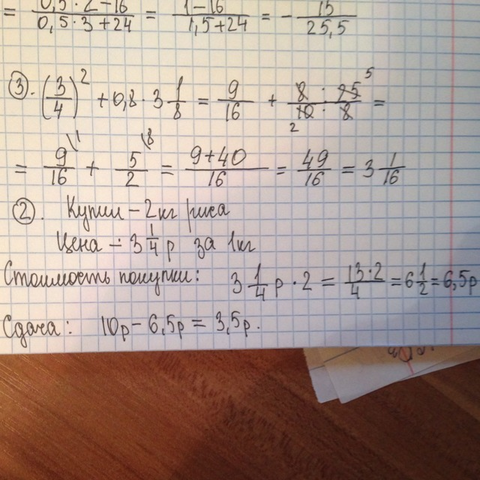 = (0,5·2−16)/(0,5·3+24) = (1−16)/(1,5+24) = −15/25,5
③. (3/4)² + 0,8·3 1/8 = 9/16 + (8 : 25 5)/(2 10 : 8) =
= 9/16 \1 + 5/2 \8 = (9+40)/16 = 49/16 = 3 1/16
②. Купили – 2кг риса
Цена – 3 1/4 р за 1кг
Стоимость покупки: 3 1/4 р · 2 = (13·2)/4 = 6 1/2 = 6,5р
Сдача: 10р – 6,5р = 3,5р.